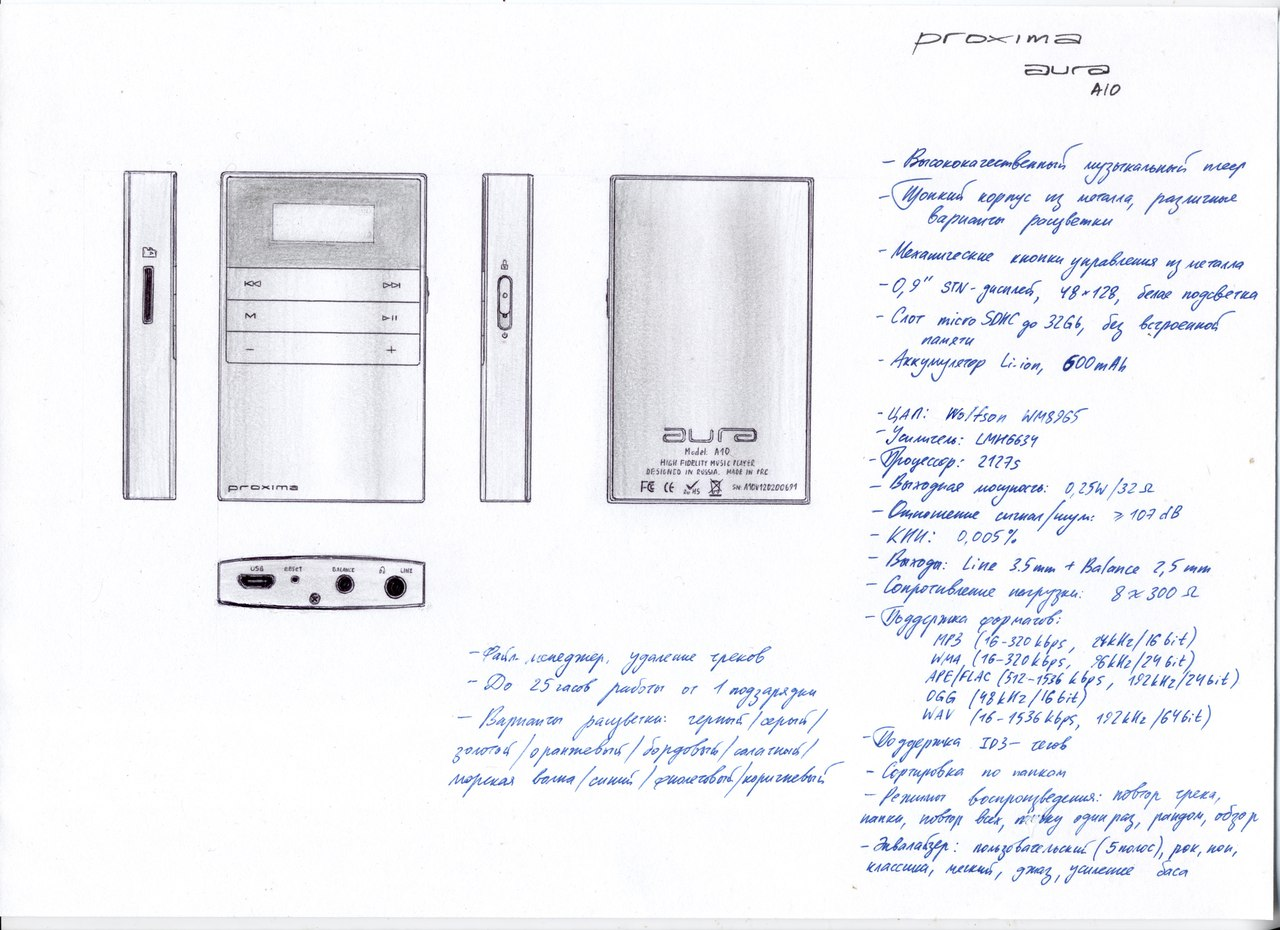 proxima
aura
A10
- Высококачественный музыкальный плеер
- Тонкий корпус из металла, различные
варианты расцветки
- Механические кнопки управления из металла
- 0,9" STN-дисплей, 48×128, белая подсветка
- Слот micro SDHC до 32Gb, без встроенной
памяти
- Аккумулятор Li-ion, 600mAh
- ЦАП: Wolfson WM8965
- Усилитель: LMH6634
- Процессор: 2127s
- Выходная мощность: 0,25W/32Ω
- Отношение сигнал/шум: ≥107dB
- КНИ: 0,005%
- Выходы: Line 3.5mm + Balance 2,5mm
- Сопротивление нагрузки: 8~300 Ω
- Поддержка форматов:
MP3 (16-320kbps, 24kHz/16bit)
WMA (16-320kbps, 96kHz/24bit)
APE/FLAC (512-1536kbps, 192kHz/24bit)
OGG (48kHz/16bit)
WAV (16-1536kbps, 192kHz/64bit)
- Поддержка ID3-тегов
- Сортировка по папкам
- Режимы воспроизведения: повтор трека,
папки, повтор всех, один раз, рандом, обзор
- Эквалайзер: пользовательский (5 полос), рок, поп,
классика, мягкий, джаз, усиление баса
M
- +
proxima
aura
Model: A10
HIGH FIDELITY MUSIC PLAYER
DESIGNED IN RUSSIA. MADE IN PRC
FC CE RoHS SN: A10V120200691
USB RESET BALANCE LINE
- Файл. менеджер, удаление треков
- До 25 часов работы от 1 подзарядки
- Варианты расцветки: черный/серый/
золотой/оранжевый/бордовый/салатный/
морская волна/синий/фиолетовый/коричневый